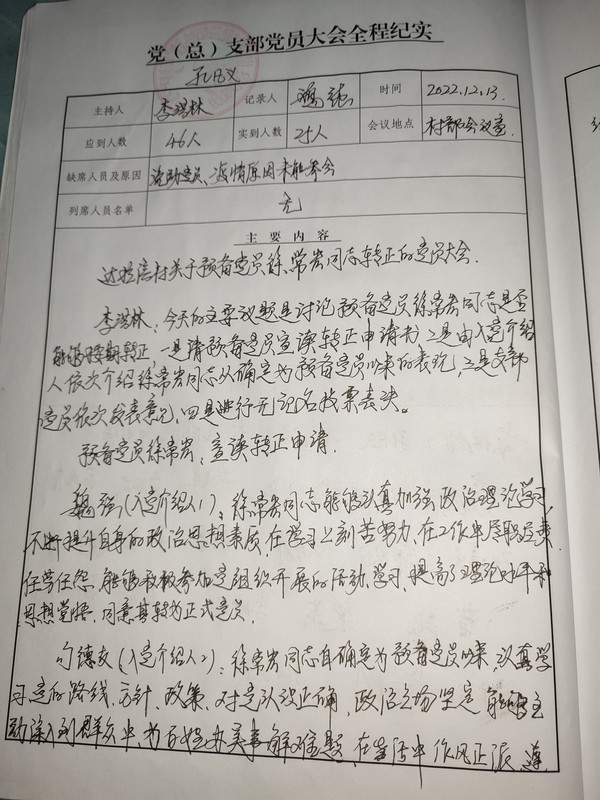 党（总）支部党员大会全程纪实
主持人 李洪林 记录人 时间 2022.12.13.
应到人数 46人 实到人数 25人 会议地点 村部会议室.
缺席人员及原因 流动党员、疫情原因未能参会
列席人员名单 无
主要内容
村关于预备党员徐常宏同志转正的党员大会.
李洪林：今天的主要议题是讨论预备党员徐常宏同志是否
能够按期转正，一是请预备党员宣读转正申请书，二是由入党介绍
人依次介绍徐常宏同志从确定为预备党员以来的表现，三是支部
党员依次发表意见，四是进行无记名投票表决。
预备党员徐常宏，宣读转正申请.
魏强（入党介绍人1）：徐常宏同志能够认真加强政治理论学习，
不断提升自身的政治思想素质，在学习上刻苦努力，在工作中尽职尽责，
任劳任怨，能够积极参加党组织开展的活动、学习，提高了理论水平和
思想觉悟，同意其转为正式党员.
勾德友（入党介绍人2）：徐常宏同志自确定为预备党员以来，认真学
习党的路线、方针、政策，对党认识正确，政治立场坚定，能够主
动深入到群众中，为百姓办实事解难题，在生活中作风正派，遵